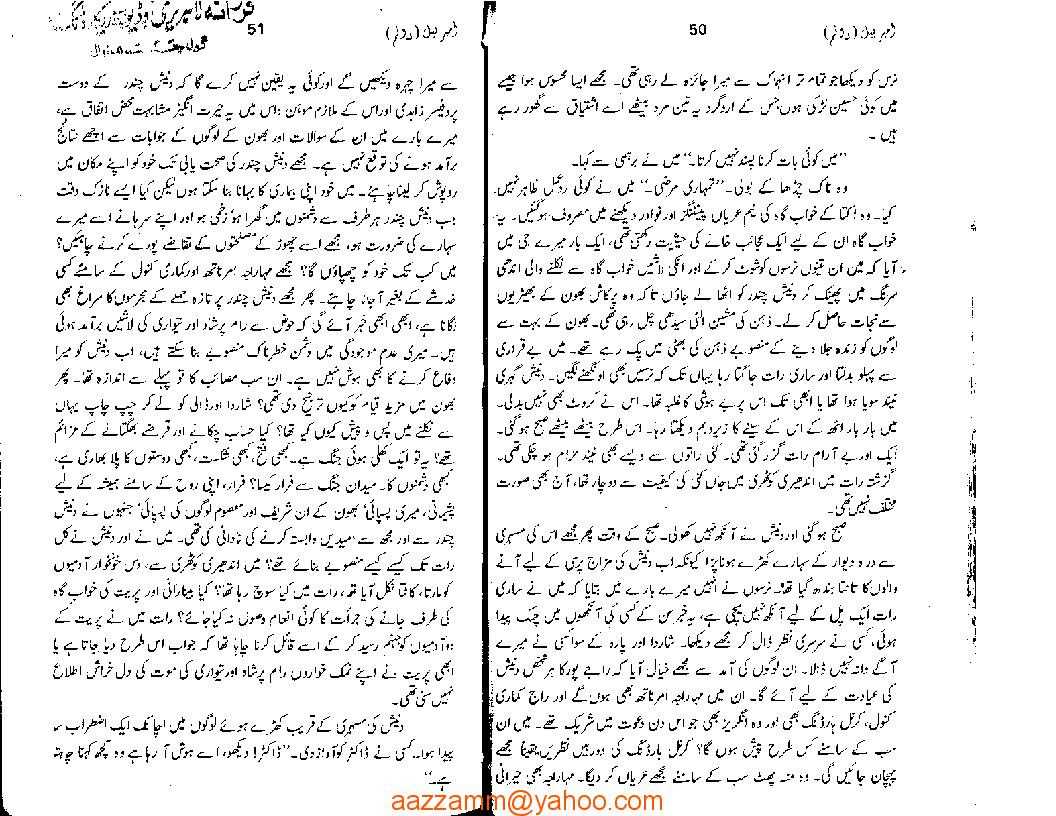 امر بیل (دوئم)
50
نرس کو دیکھا جو تمام تر انہماک سے میرا جائزہ لے رہی تھی۔ مجھے ایسا محسوس ہوا جیسے
میں کوئی حسین لڑکی ہوں جس کے اردگرد یہ تین مرد بیٹھے اسے اشتیاق سے گھور رہے
ہیں۔
”میں کوئی بات کرنا پسند نہیں کرتا۔“ میں نے برہمی سے کہا۔
وہ ناک چڑھا کے بولی۔ ”تمہاری مرضی“ میں نے کوئی ردعمل ظاہر نہیں
کیا۔ وہ ڈکشا کے خواب گاہ کی نیم عریاں پینٹنگز اور نوادر دیکھنے میں مصروف ہوگئیں۔ یہ
خواب گاہ ان کے لیے ایک عجائب خانے کی حیثیت رکھتی تھی، ایک بار میرے جی میں
آیا کہ میں ان تینوں نرسوں کو شوٹ کرکے اور انکی لاشیں خواب گاہ سے نکلنے والی اندھی
سرنگ میں پھینک کر دنیش چندر کو اٹھا لے جاؤں تاکہ وہ پرکاش بھون کے بھیڑیوں
سے نجات حاصل کر لے۔ ذہن کی مشین الٹی سیدھی چل رہی تھی۔ بھون کے بہت سے
لوگوں کو زندہ جلا دینے کے منصوبے ذہن کی بھٹی میں پک رہے تھے۔ میں بے قراری
سے پہلو بدلتا اور ساری رات جاگتا رہا یہاں تک کہ نرسیں بھی اونگھنے لگیں۔ دنیش گہری
نیند سویا ہوا تھا یا ابھی تک اس پر بے ہوشی کا غلبہ تھا۔ اس نے کروٹ بھی نہیں بدلی۔
میں بار بار اٹھ کے اس کے سینے کا زیر و بم دیکھتا رہا۔ اس طرح بیٹھے بیٹھے صبح ہوگئی۔
ایک اور بے آرام رات گزر گئی تھی۔ کئی راتوں سے ویسے بھی نیند حرام ہو چکی تھی۔
گزشتہ رات میں اندھیری کوٹھری میں جاں کنی کی کیفیت سے دوچار تھا، آج بھی صورت
مختلف نہیں تھی۔
صبح ہوگئی اور دنیش نے آنکھ نہیں کھولی۔ صبح کے وقت پھر مجھے اس کی مسہری
سے دور دیوار کے سہارے کھڑے ہونا پڑا کیونکہ اب دنیش کی مزاج پرسی کے لیے آنے
والوں کا تانتا بندھ گیا تھا۔ نرسوں نے انہیں میرے بارے میں بتایا کہ میں نے ساری
رات ایک پل کے لیے آنکھ نہیں میچی ہے، یہ خبر سن کے کسی کی آنکھوں میں چمک پیدا
ہوئی، کسی نے سرسری نظر ڈال کر مجھے دیکھا۔ شاردا اور پارو کے سوا کسی نے میرے
آگے دانہ نہیں ڈالا۔ ان لوگوں کی آمد سے مجھے خیال آیا کہ راجے پور کا ہر شخص دنیش
کی عیادت کے لیے آئے گا۔ ان میں مہاراجہ امر ناتھ بھی ہوں گے اور راج کماری
کنول، کرنل ہارڈنگ بھی اور وہ انگریز بھی جو اس دن دعوت میں شریک تھے۔ میں ان
سب کے سامنے کس طرح پیش ہوں گا؟ کرنل ہارڈنگ کی دوربیں نظریں یقیناً مجھے
پہچان جائیں گی۔ وہ منہ پھٹ سب کے سامنے مجھے عریاں کر دیگا۔ مہاراجہ بھی حیرانی
امر بیل (دوئم)
51
سے میرا چہرہ دیکھیں گے اور کوئی یہ یقین نہیں کرے گا کہ دنیش چندر کے دوست
پروفیسر زاہدی اور اس کے ملازم موہن داس میں یہ حیرت انگیز مشابہت محض اتفاق ہے،
میرے بارے میں ان کے سوالات اور بھون کے لوگوں کے جوابات سے اچھے نتائج
برآمد ہونے کی توقع نہیں ہے۔ مجھے دنیش چندر کی صحت یابی تک خود کو اپنے مکان میں
روپوش کر لینا چاہئے۔ میں خود اپنی بیماری کا بہانا بنا سکتا ہوں لیکن کیا ایسے نازک وقت
جب دنیش چندر ہر طرف سے دشمنوں میں گھرا ہو، زخمی ہو اور اپنے سرہانے اسے میرے
سہارے کی ضرورت ہو، مجھے اسے چھوڑ کے مصلحتوں کے تقاضے پورے کرنے چاہئیں؟
میں کب تک خود کو چھپاؤں گا؟ مجھے مہاراجہ امر ناتھ اور کماری کنول کے سامنے کسی
خدشے کے بغیر آ جانا چاہئے۔ پھر مجھے دنیش چندر پر تازہ حملے کے مجرموں کا سراغ بھی
لگانا ہے، ابھی ابھی خبر آئے گی کہ حوض سے رام پرشاد اور تیواری کی لاشیں برآمد ہوئی
ہیں۔ میری عدم موجودگی میں دشمن خطرناک منصوبے بنا سکتے ہیں، اب دنیش کو میرا
دفاع کرنے کا بھی ہوش نہیں ہے۔ ان سب مصائب کا تو پہلے سے اندازہ تھا۔ پھر
بھون میں مزید قیام کو کیوں ترجیح دی تھی؟ شاردا اور ڈالی کو لے کر چپ چاپ یہاں
سے نکلنے میں پس و پیش کیوں کیا تھا؟ کیا حساب چکانے اور قرضے بھگتانے کے عزائم
تھے؟ یہ تو ایک کھلی ہوئی جنگ ہے۔ کبھی فتح، کبھی شکست، کبھی دوستوں کا پلا بھاری ہے،
کبھی دشمنوں کا۔ میدان جنگ سے فرار کیسا؟ فرار، اپنی روح کے سامنے ہمیشہ کے لیے
پشیمانی، میری پسپائی بھون کے ان شریف اور معصوم لوگوں کی پسپائی جنہوں نے دنیش
چندر سے اور مجھ سے امیدیں وابستہ کرنے کی نادانی کی تھی۔ میں نے اور دنیش نے کل
رات تک کیسے کیسے منصوبے بنائے تھے؟ میں اندھیری کوٹھری سے، دس خونخوار آدمیوں
کو مارتا، کاٹتا نکل آیا تھا، رات میں کیا سوچ رہا تھا؟ کیا بیتا رانی اور پریت کی خواب گاہ
کی طرف جانے کی جرأت کا کوئی انعام وصول نہ کیا جائے؟ رات میں نے پریت کے
دو آدمیوں کو جہنم رسید کرکے اسے قائل کرنا چاہا تھا کہ جواب اس طرح دیا جاتا ہے یا
ابھی پریت نے اپنے نمک خواروں رام پرشاد اور تیواری کی موت کی دل خراش اطلاع
نہیں سنی تھی۔
دنیش کی مسہری کے قریب کھڑے ہوئے لوگوں میں اچانک ایک اضطراب سا
پیدا ہوا۔ کسی نے ڈاکٹر کو آواز دی۔ ”ڈاکٹر! دیکھو، اسے ہوش آ رہا ہے وہ کچھ کہنا چاہتا
ہے۔“
aazzamm@yahoo.com